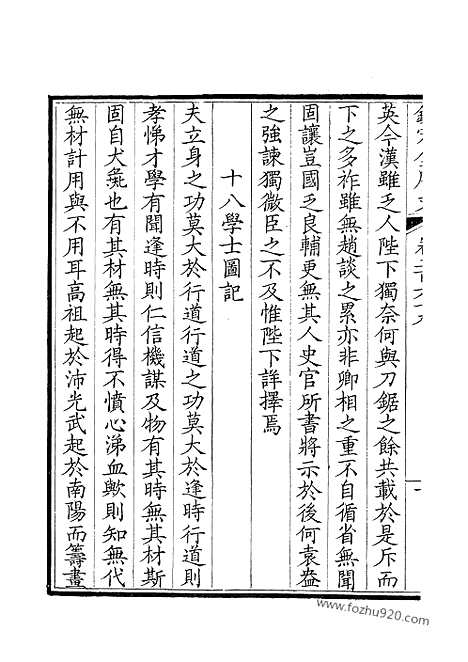 英今漢雖乏人陛下獨奈何與刀鋸之餘共載於是斥而
下之多祚雖無趙談之累亦非卿相之重不自循省無聞
固讓豈國乏良輔更無其人史官所書將示於後何袁盎
之強諫獨微臣之不及惟陛下詳擇焉
十八學士圖記
夫立身之功莫大於行道行道之功莫大於逢時行道則
孝悌才學有聞逢時則仁信機謀及物有其時無其材斯
固自犬彘也有其材無其時得不憤心涕血歟則知無代
無材計用與不用耳高祖起於沛光武起於南陽而籌畫
www.fozhu920.com